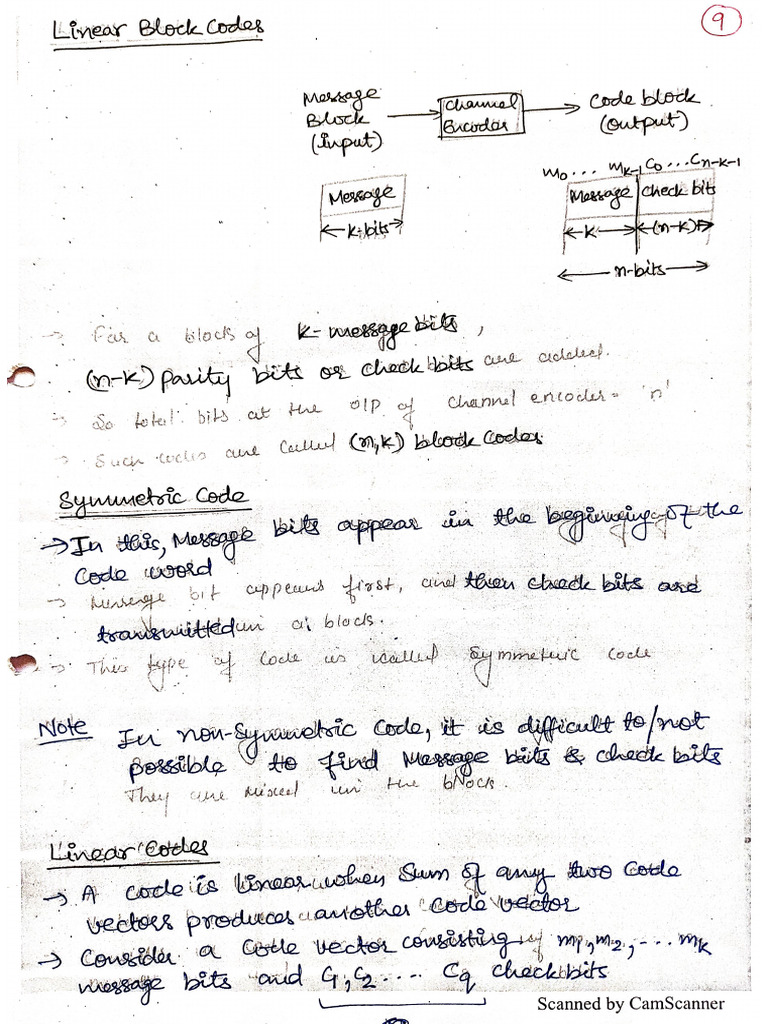 Linear Block Codes
9
Message
Block
(input)
Channel
Encoder
Code block
(output)
m0 ... mk-1 c0 ... cn-k-1
Message
Message
check bits
k-bits
k
(n-k)
n-bits
→ For a block of k-message bits,
(n-k) parity bits or check bits are added.
→ So total bits at the O/P of channel encoder = 'n'
→ Such codes are called (n,k) block codes.
Symmetric Code
→ In this, Message bits appear in the beginning of the
code word
→ Message bit appears first, and then check bits are
transmitted in a block.
→ This type of code is called symmetric code
Note In non-symmetric code, it is difficult to/not
possible to find Message bits & check bits
They are mixed in the block.
Linear Codes
→ A code is linear when sum of any two code
vectors produces another code vector
→ Consider a code vector consisting of m1, m2, ... mk
message bits and C1, C2 .... Cq check bits
Scanned by CamScanner